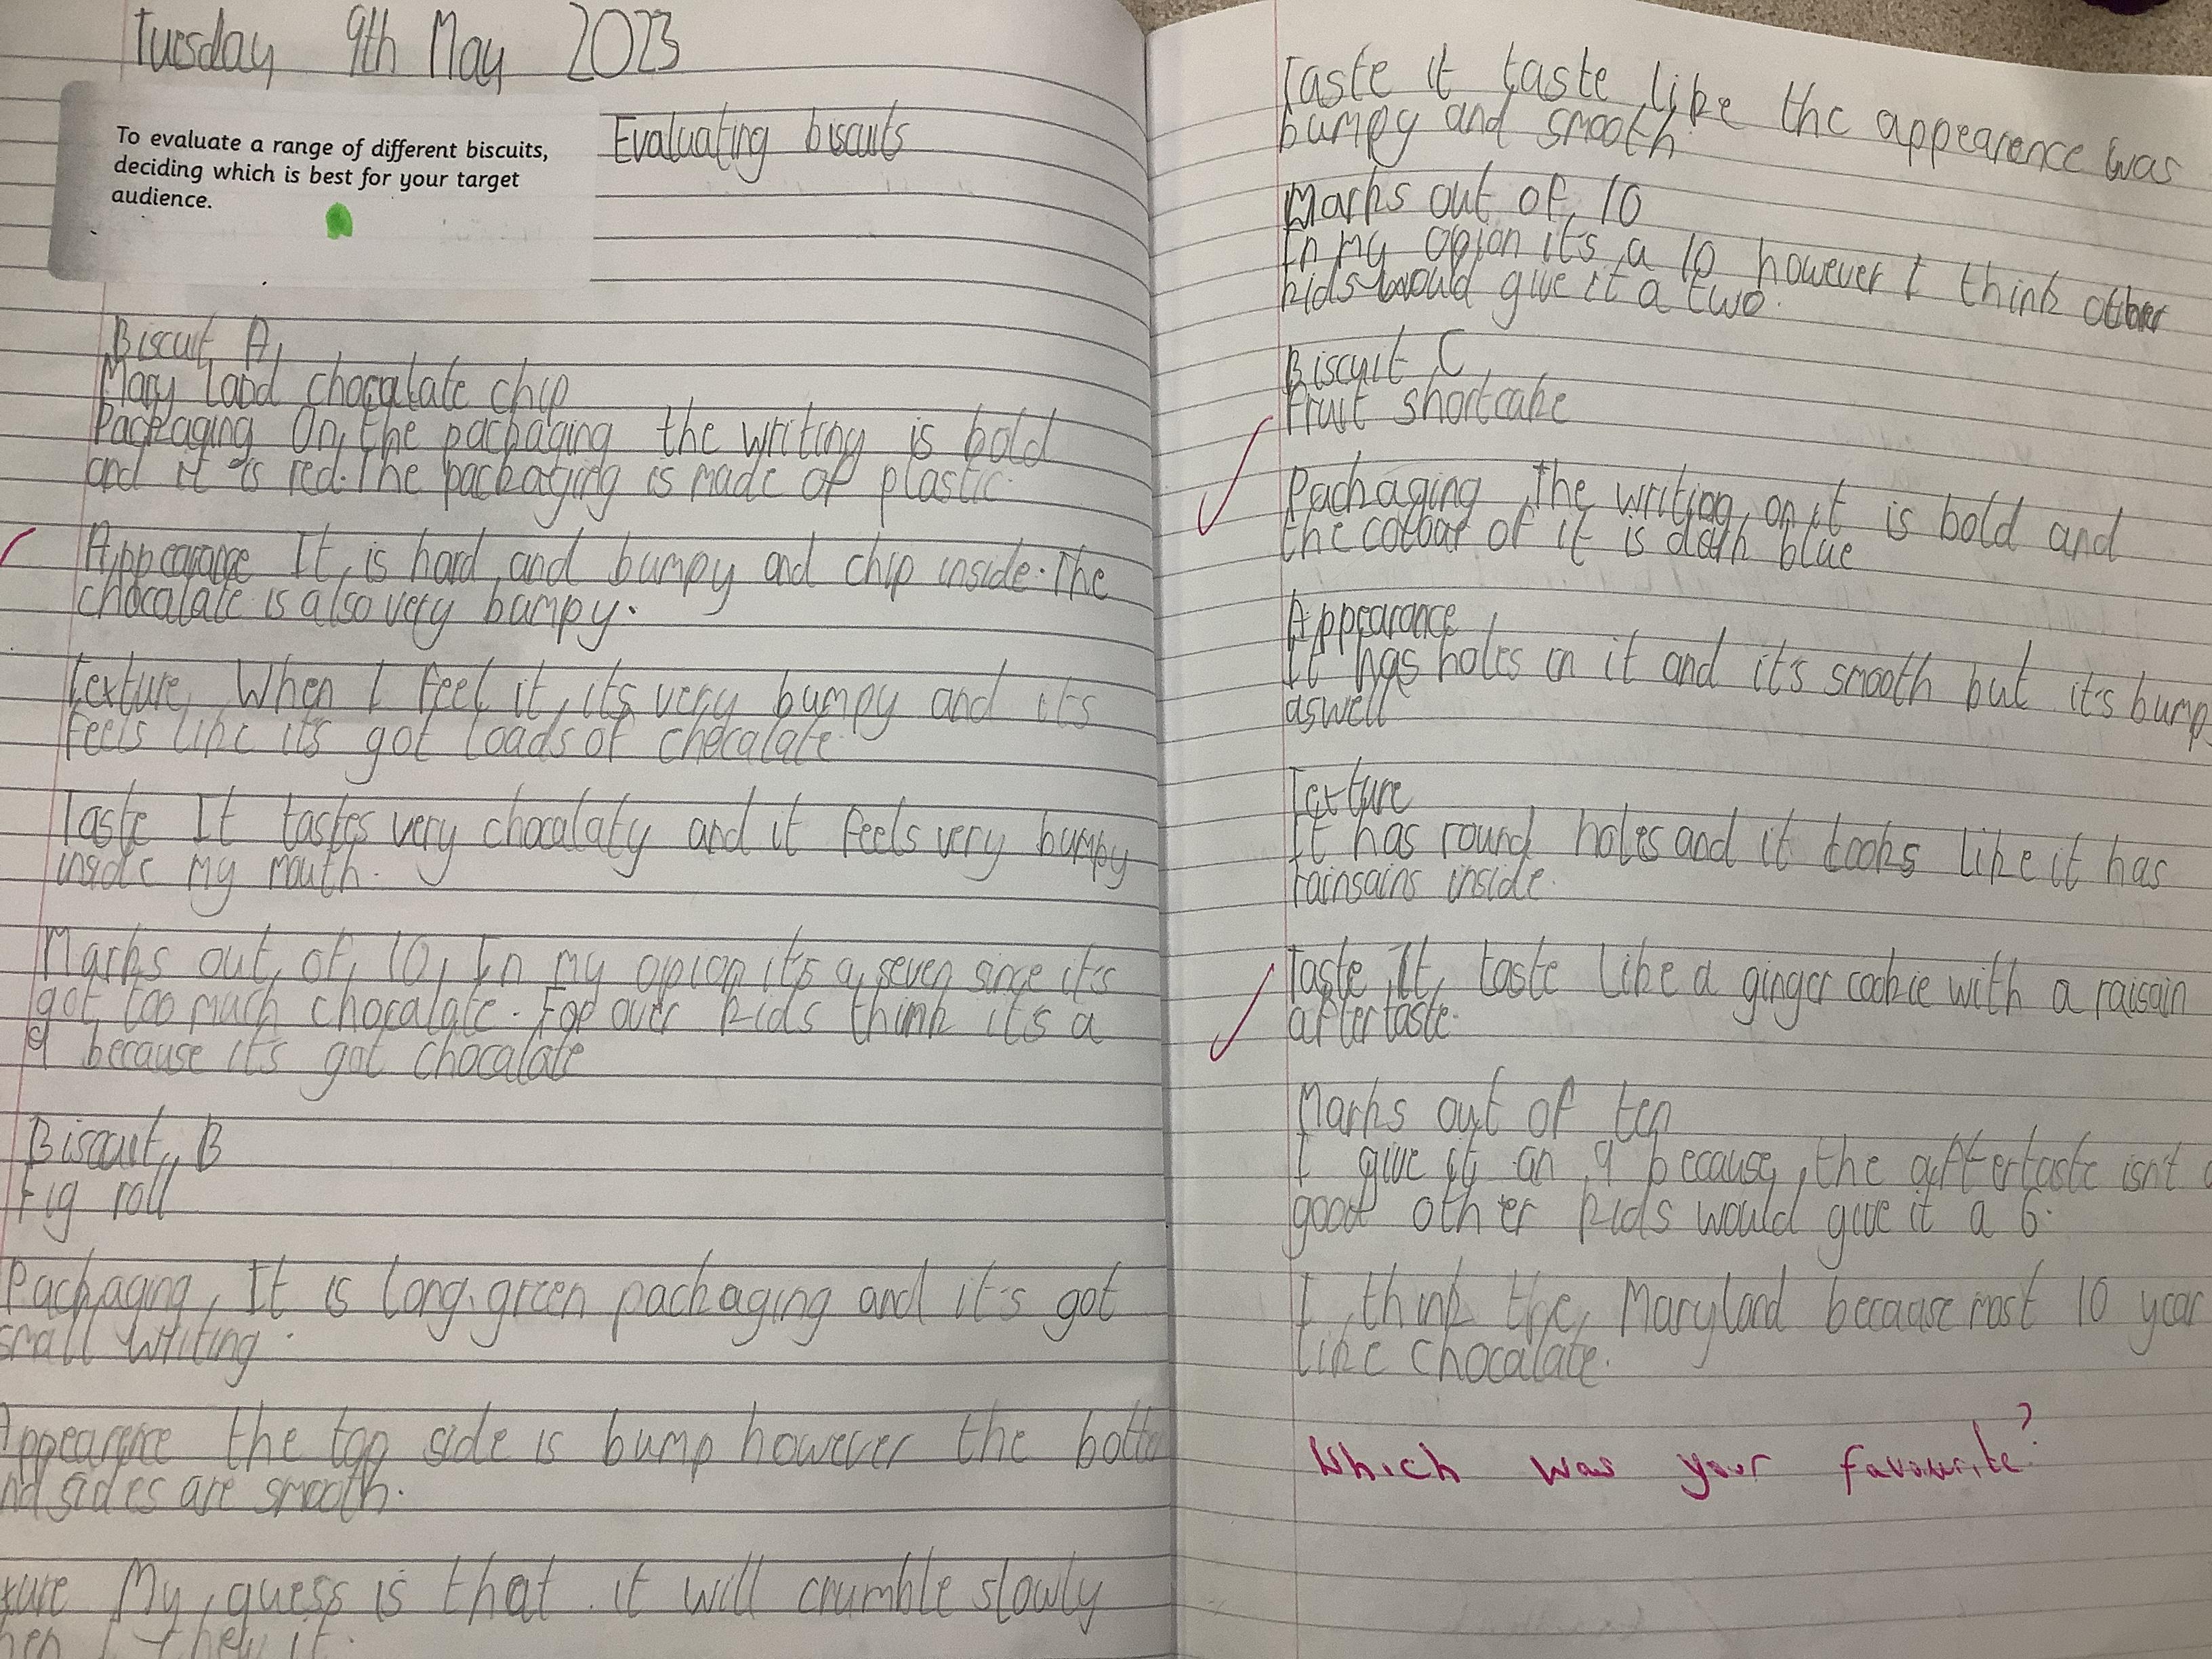 Tuesday 9th May 2023
To evaluate a range of different biscuits,
deciding which is best for your target
audience.
Evaluating biscuits
Biscuit A
Mary Land chocalate chip
Packaging On the packaging the writing is bold
and it is red. The packaging is made of plastic.
Appearance It is hard and bumpy and chip inside. The
chocalate is also very bumpy.
Texture When I feel it, its very bumpy and its
feels like it's got loads of chocalate.
Taste It tastes very chocalaty and it feels very bumpy
inside my mouth.
Marks out of 10, In my opion it's a seven since it's
got too much chocalate. For over kids think it's a
9 because it's got chocalate
Biscuit B
Fig roll
Packaging, It is long, green packaging and it's got
small writing.
Appearence the top side is bump however the botto
nd sides are smooth.
xture My guess is that it will crumble slowly
hen I chew it.
Taste it taste like the appearence was
bumpy and smooth
Marks out of 10
In my opion it's a 10 however I think other
kids would give it a two.
Biscuit C
Fruit shortcake
Packaging The writing on it is bold and
the colour of it is dark blue
Appearance
It has holes in it and it's smooth but it's bump
aswell
Texture
It has round holes and it looks like it has
rainsains inside.
Taste It taste like a ginger cookie with a raisain
aftertaste.
Marks out of ten
I give it an 9 because the aftertaste isn't
good other kids would give it a 6.
I think the Maryland because most 10 year
like chocalate.
Which was your favourite?